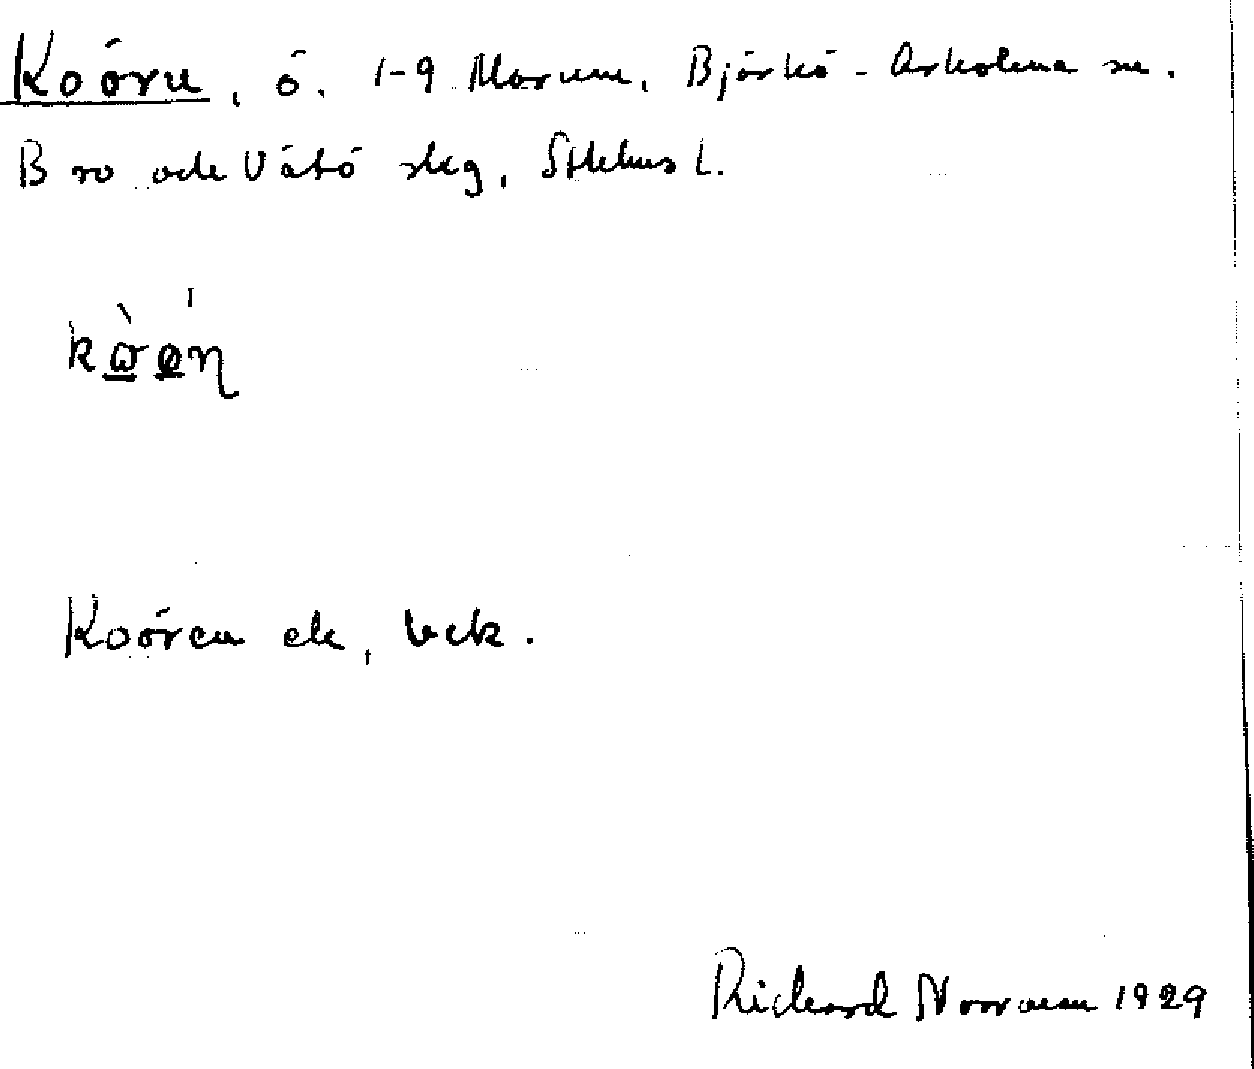 Koörn, ö. 1-9 Marum, Björkö-Arholma sn.
Bro och Vätö skg, Sthlms l.
kò̱ǿ̱η
Koören ek, beck.
Richard Norrman 1929